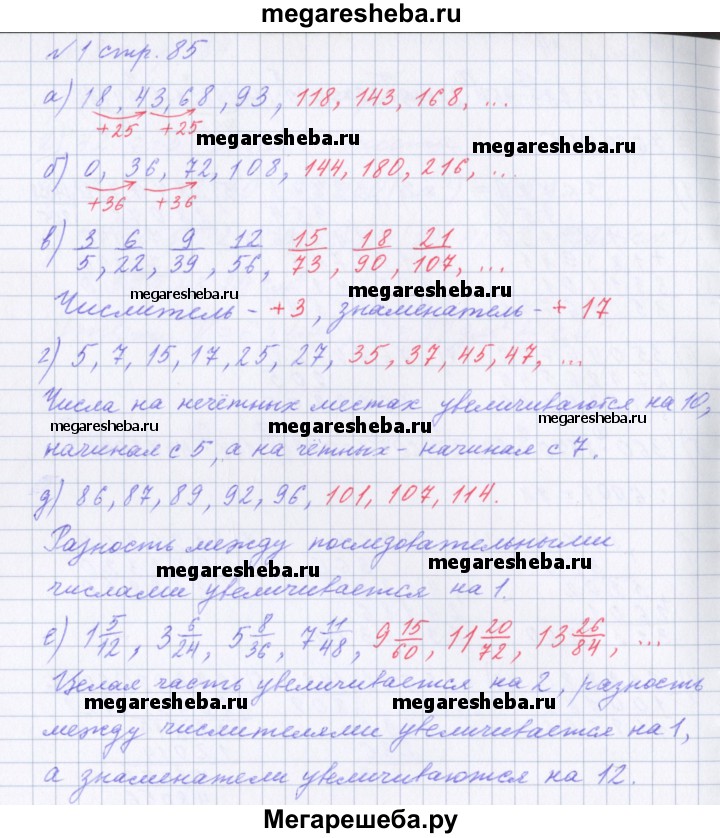 megaresheba.ru
№ 1 стр. 85
а) 18, 43, 68, 93, 118, 143, 168, ...
+25 +25
megaresheba.ru
megaresheba.ru
б) 0, 36, 72, 108, 144, 180, 216, ...
+36 +36
в) 3/5, 6/22, 9/39, 12/56, 15/73, 18/90, 21/107, ...
megaresheba.ru
megaresheba.ru
Числитель - +3, знаменатель - +17
г) 5, 7, 15, 17, 25, 27, 35, 37, 45, 47, ...
Числа на нечётных местах увеличиваются на 10,
megaresheba.ru
megaresheba.ru
начиная с 5, а на чётных - начиная с 7.
д) 86, 87, 89, 92, 96, 101, 107, 114.
Разность между последовательными
megaresheba.ru
megaresheba.ru
числами увеличивается на 1.
е) 1 5/12, 3 6/24, 5 8/36, 7 11/48, 9 15/60, 11 20/72, 13 26/84, ...
Целая часть увеличивается на 2, разность
megaresheba.ru
megaresheba.ru
между числителями увеличивается на 1,
а знаменатели увеличиваются на 12.
Мегарешеба.ру